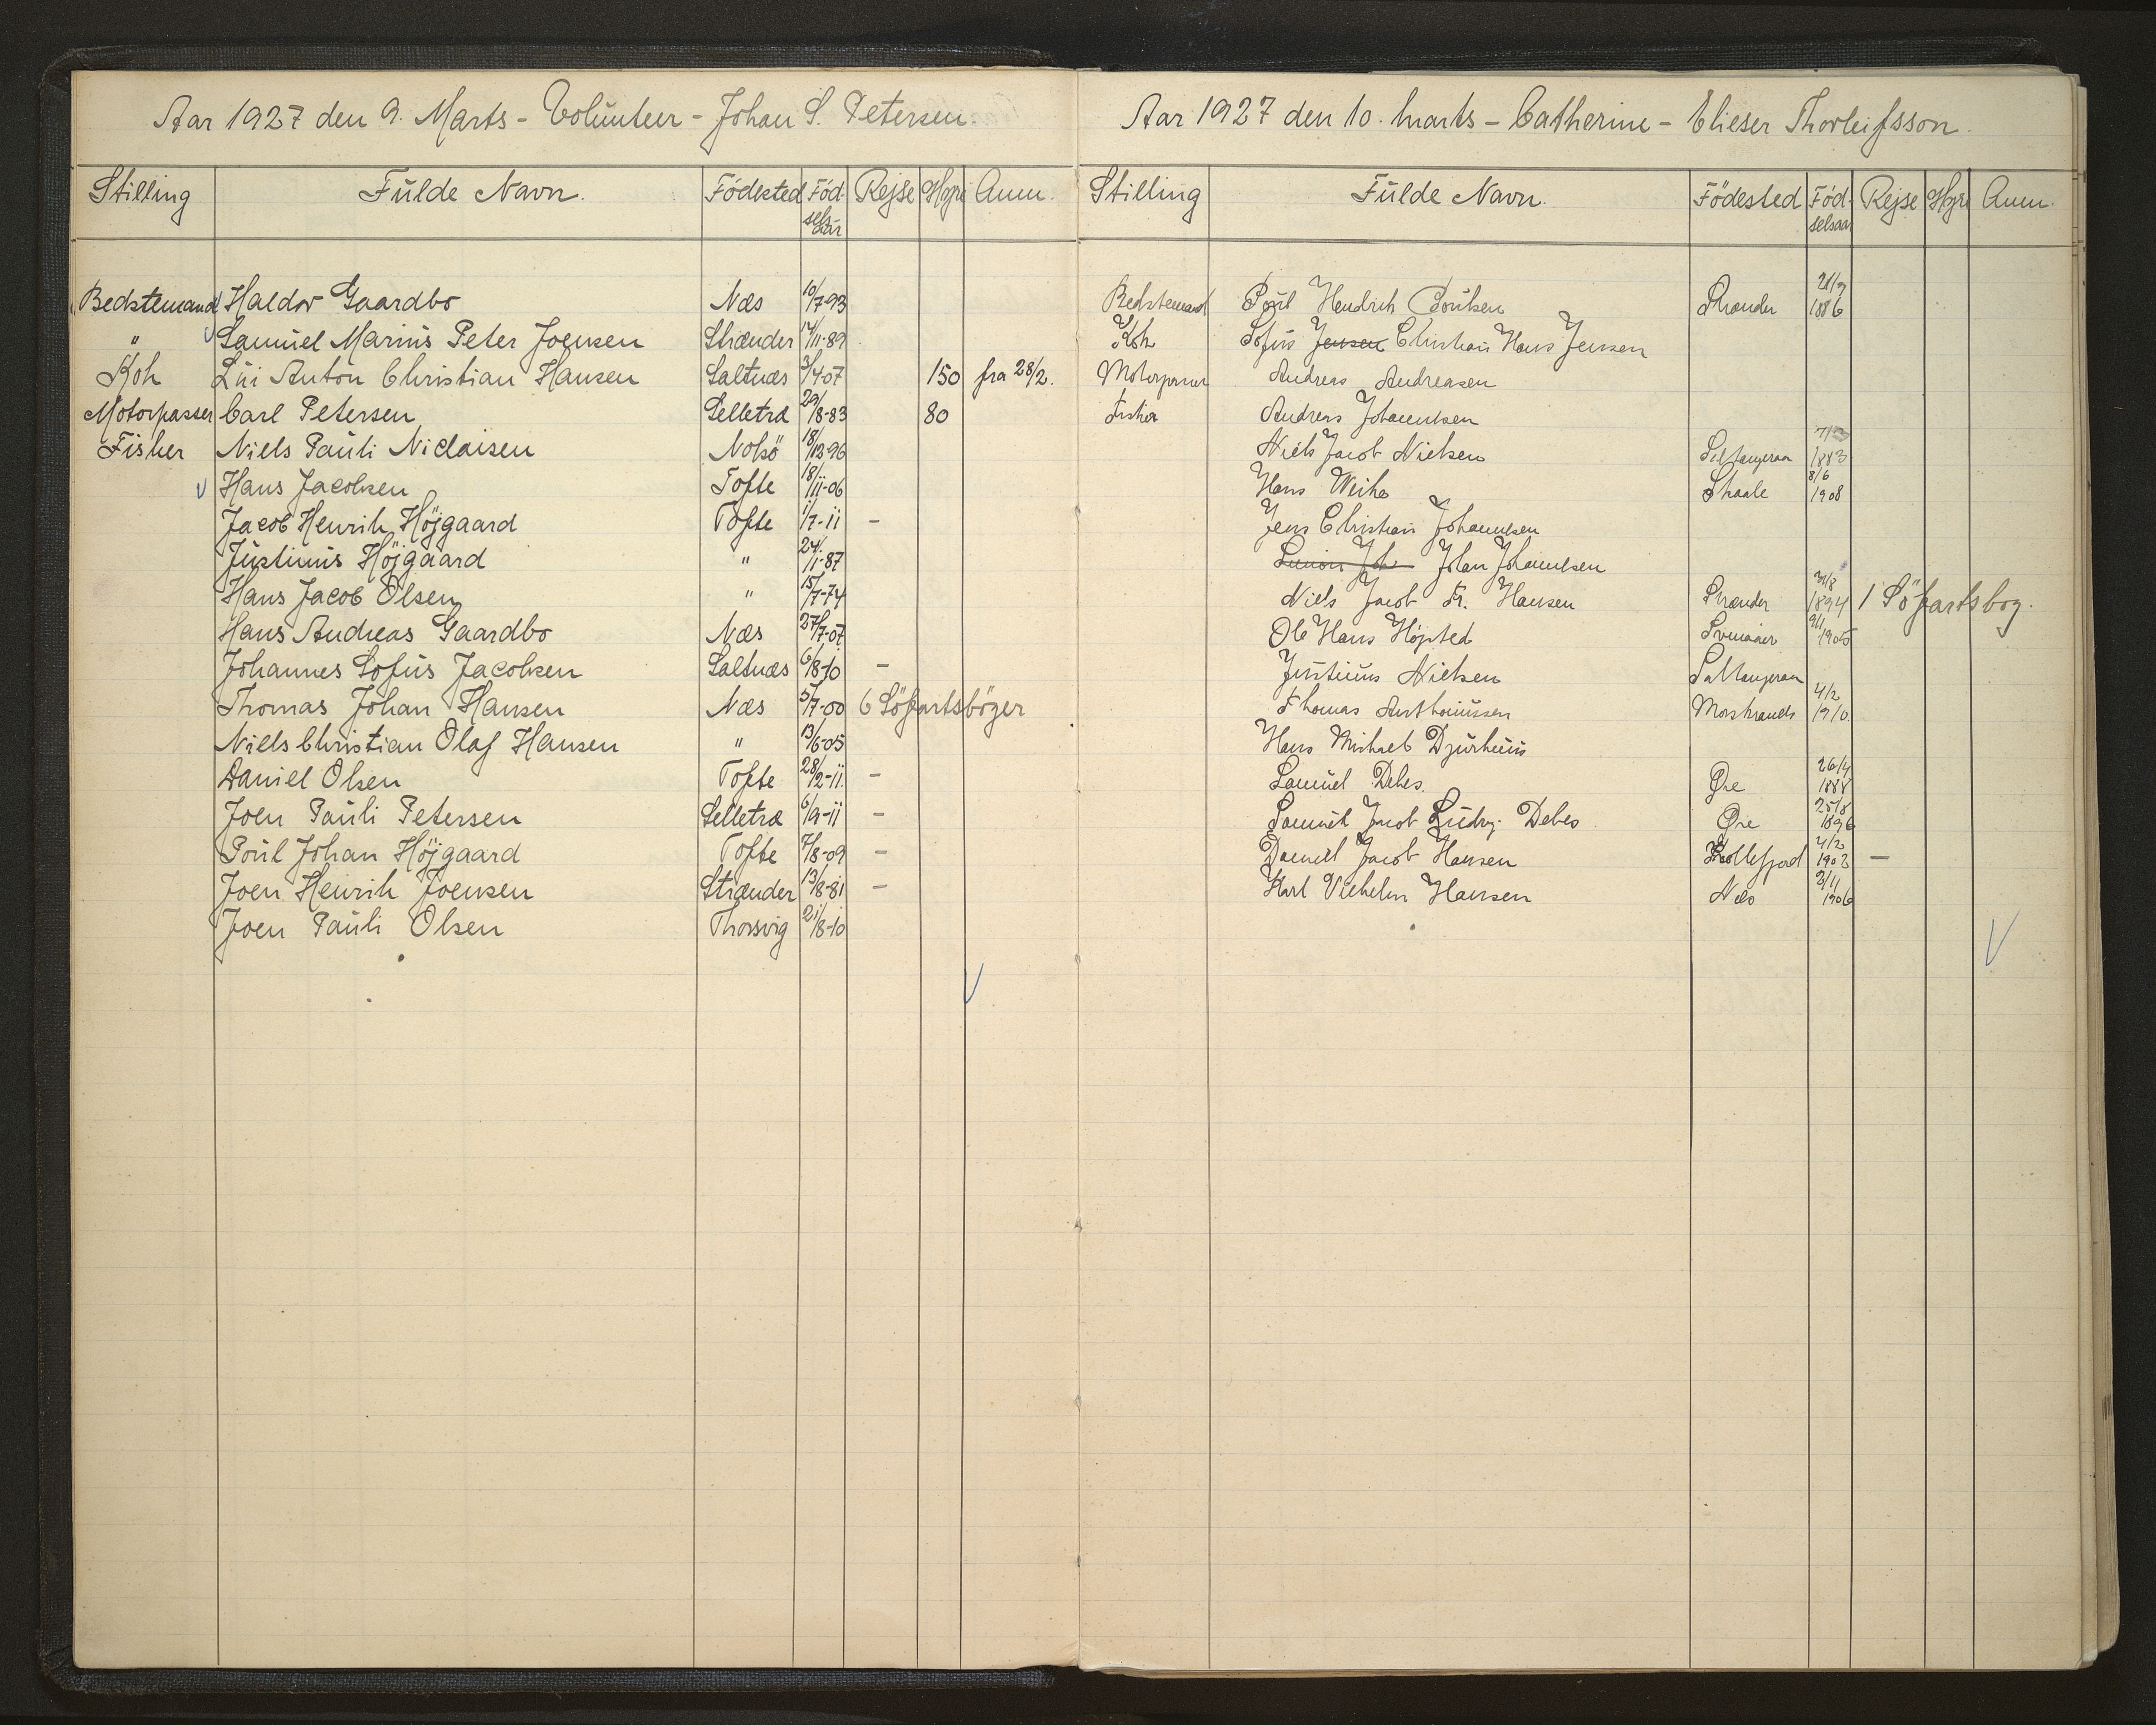 Aar 1927 den 9. Marts - Volúnteer - Johan S. Petersen.
Stilling Fúlde Navn. Födested Födselsaar Rejse Hyre Anm.
Bedstemand Haldor Gaardbo Næs 10/7-93
" Samúel Mariús Peter Joensen Strænder 14/11-89
Kok Lúi Anton Christian Hansen Saltnæs 3/4-07 150 fra 28/2.
Motorpasser Carl Petersen Selletræ 29/8-83 80
Fisker Niels Paúli Niclaisen Nolsö 18/12-96
Hans Jacobsen Tofte 18/11-06
Jacob Henrik Höjgaard Tofte 1/7-11 -
Jústinús Höjgaard " 24/11-87
Hans Jacob Olsen " 15/7-74
Hans Andreas Gaardbo Næs 27/7-07
Johannes Sofús Jacobsen Saltnæs 6/8-10 -
Thomas Johan Hansen Næs 5/7-00 6 Söfartsböger
Niels Christian Olaf Hansen " 13/6-05
Daniel Olsen Tofte 28/2-11. -
Joen Paúli Petersen Selletræ 6/9-11 -
Poúl Johan Höjgaard Tofte 7/8-09 -
Joen Henrik Joensen Strænder 13/8-81 -
Joen Paúli Olsen Thorsvig 21/8-10
Aar 1927 den 10. marts - Catherine - Elieser Thorleifsson.
Stilling Fúlde Navn. Födested Födselsaar Rejse Hyre Anm.
Bedstemand Poúl Hendrik Poúlsen Strænder 1886
Kok Sofús Jensen Christian Hans Jensen
Motorpasser Andreas Andreasen
Fisker Andreas Johannesen
Niels Jacob Nielsen 1883
Hans Weihe Skaale 8/6 1908
Jens Christian Johannesen
Johan Johannesen
Niels Jacob Fr. Hansen Strænder 1894 1 Söfartsbog.
Ole Hans Højsted 1905
Jústinús Nielsen Saltangeraa
Thomas Anthoniússen Morskranes 4/2 1910.
Hans Michael Djúrhúús
Samúel Debes. Øre 26/4 1888
Samúel Jacob Lúdvig Debes Øre 25/8 1896
Daniel Jacob Hansen Kollefjord 4/2 1903 -
Karl Vilhelm Hansen Næs 2/11 1906